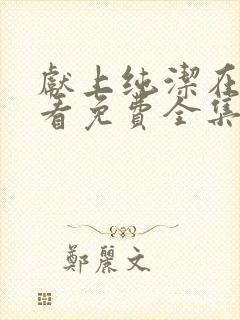 獻上纯潔在
看免費全集
鄭麗文